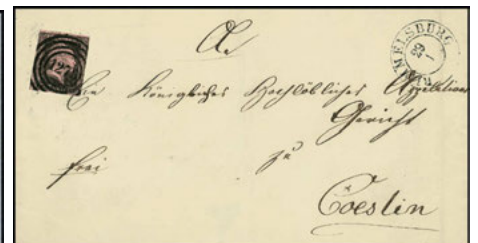 A.
RUMMELSBURG
29
1
Ein Königliches Hochlöbliches Appellations
Gericht
frei
zu
Coeslin